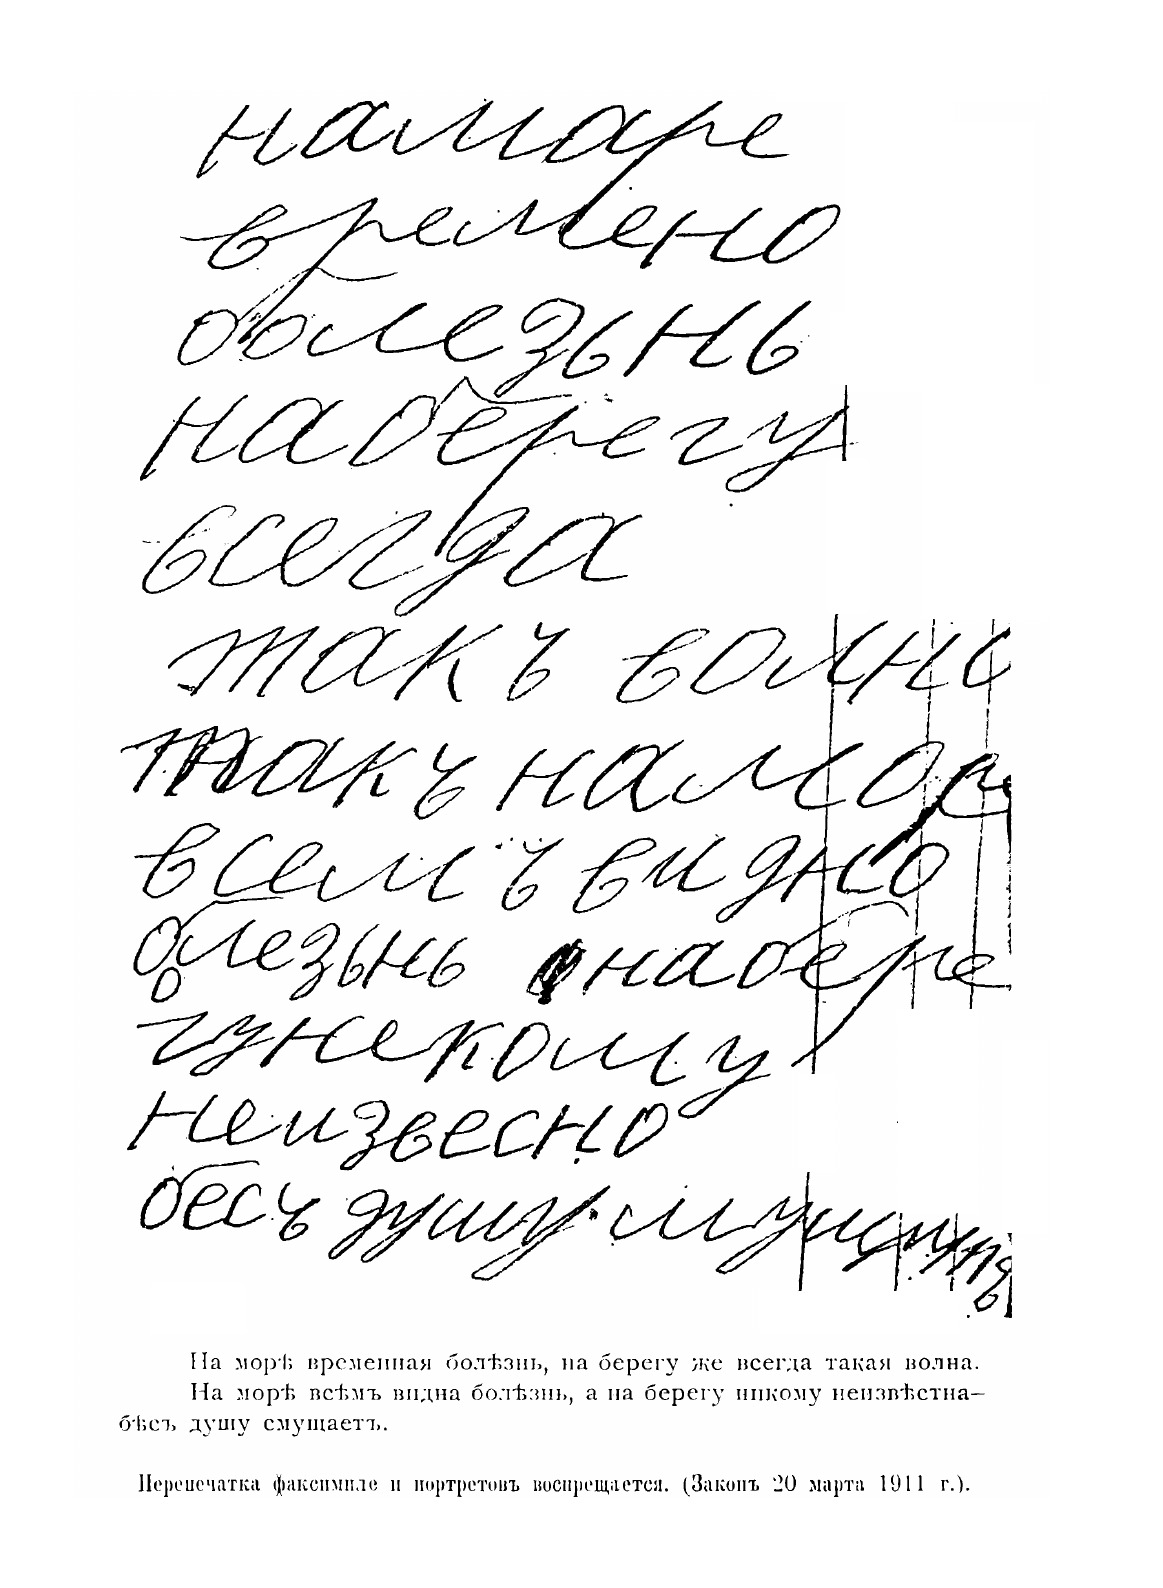 намаре
времено
болезьнь
наберегу
всегда
такъ волно
такъ наморе
всемъ видно
болезьнь набере
гунекому
неизвесно
бесъ душу мущаитъ
На морѣ временная болѣзнь, на берегу же всегда такая волна.
На морѣ всѣмъ видна болѣзнь, а на берегу никому неизвѣстна—
бѣсъ душу смущаетъ.
Перепечатка факсимиле и портретовъ воспрещается. (Законъ 20 марта 1911 г.).